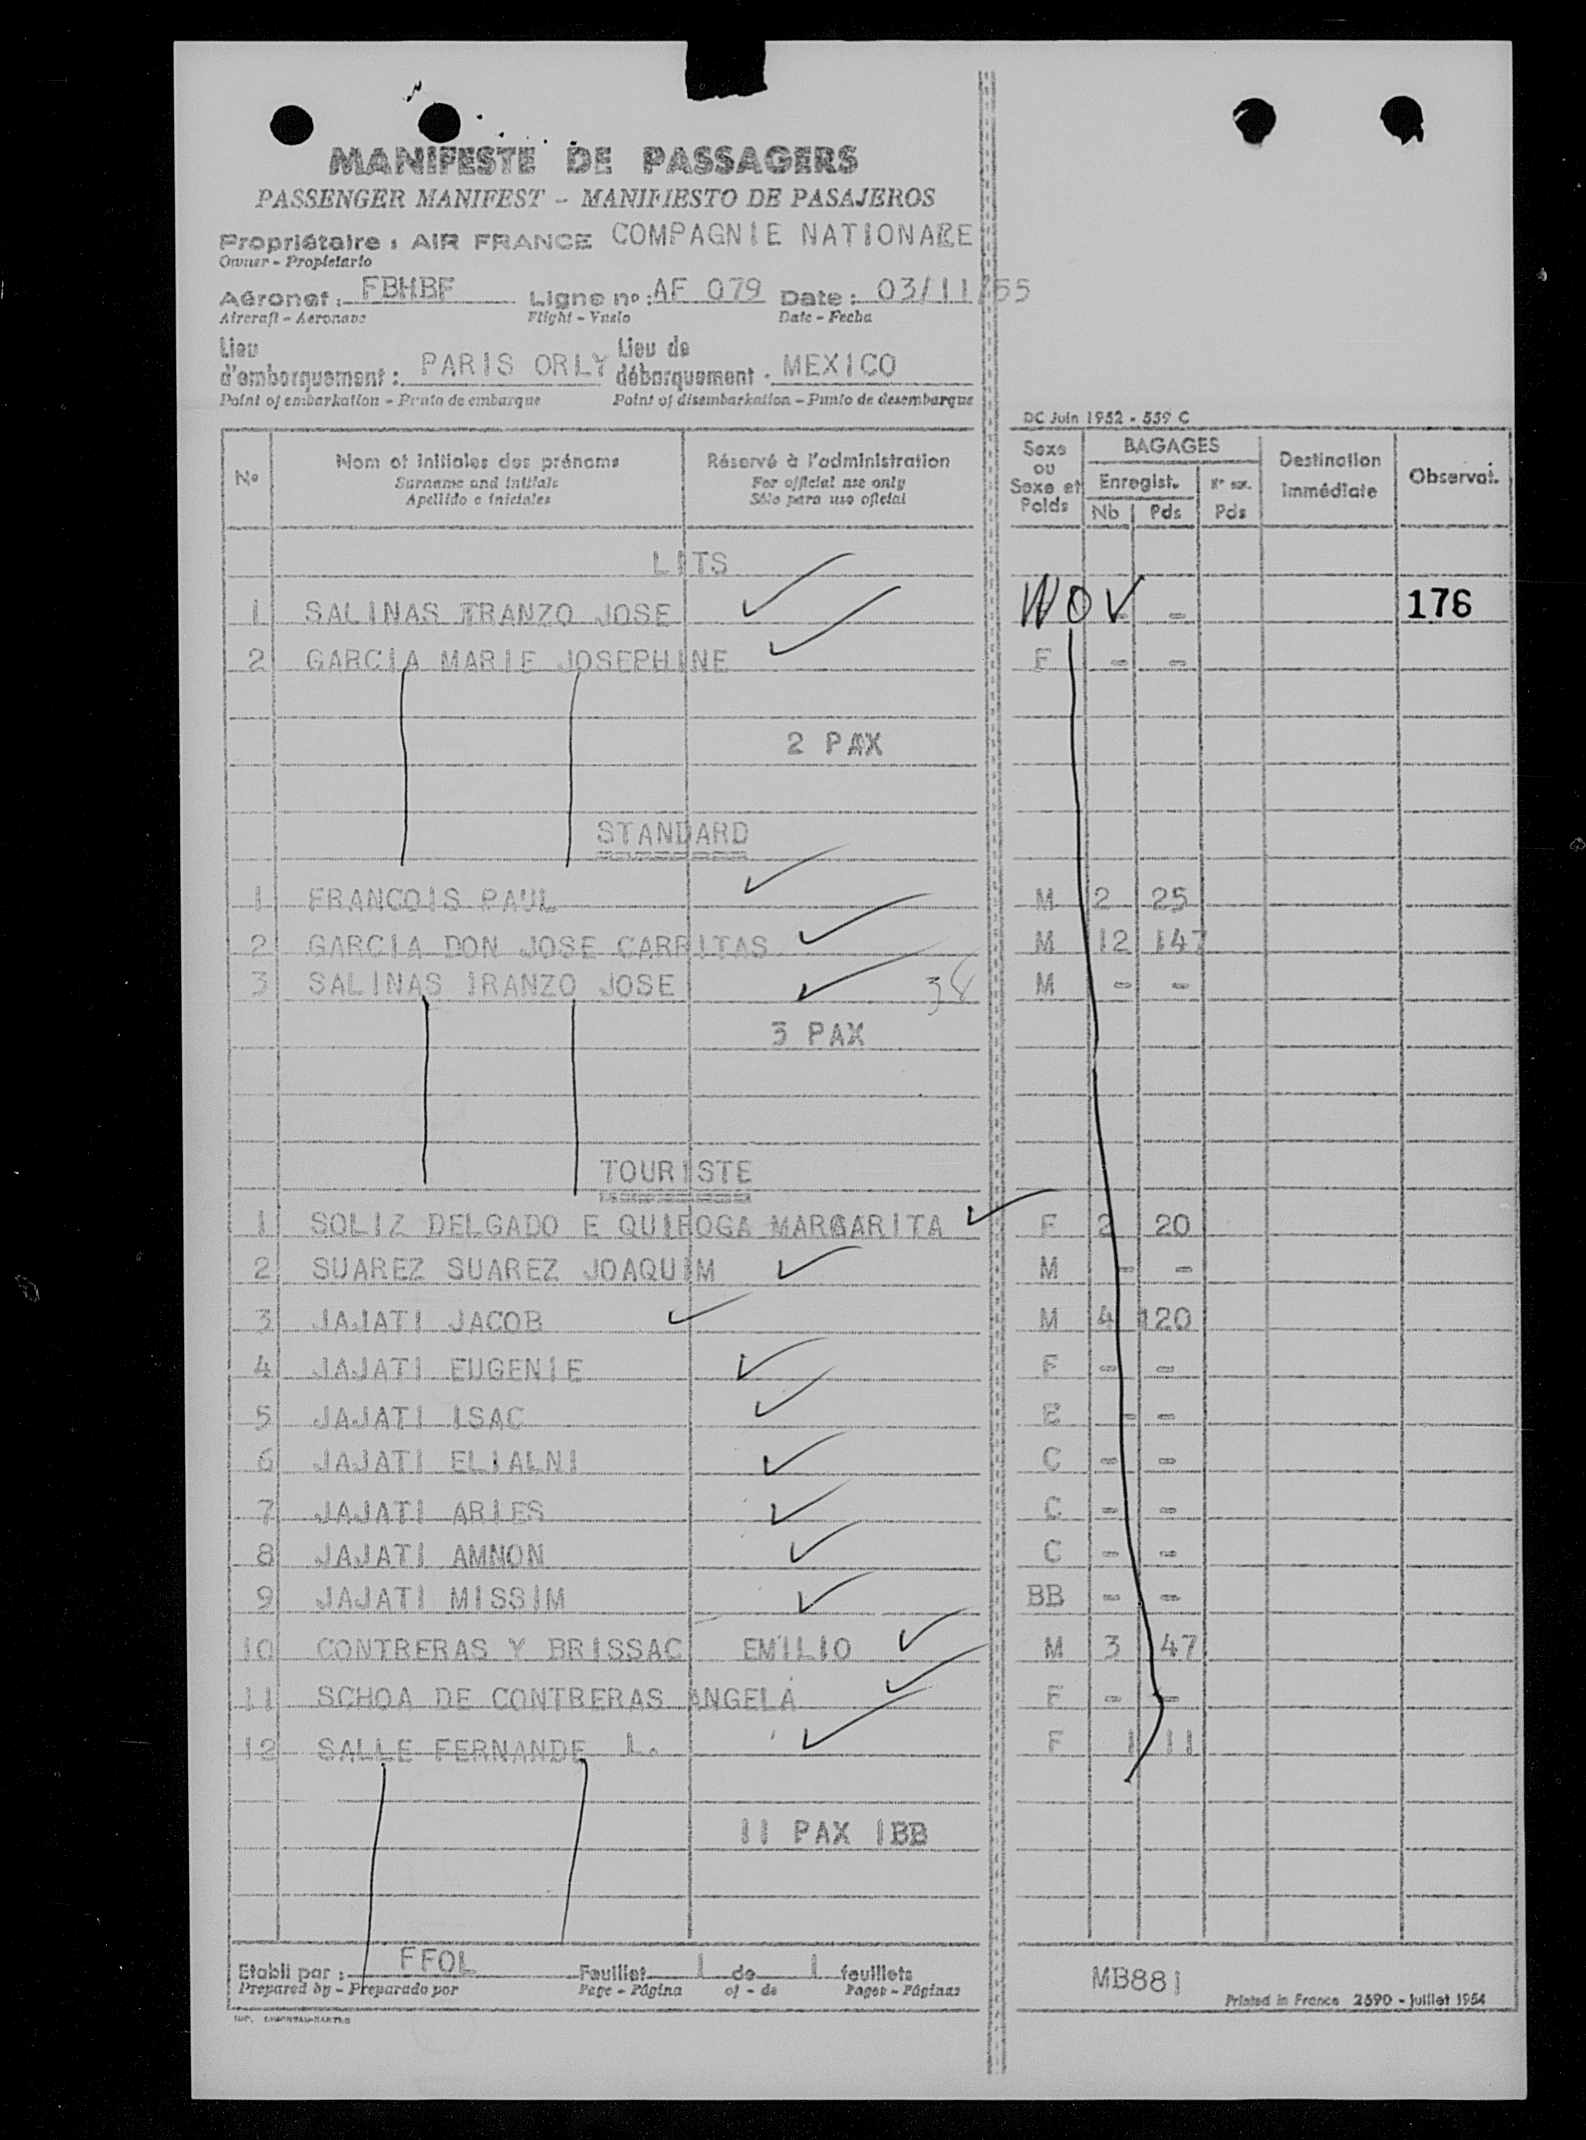 MANIFESTE DE PASSAGERS
PASSENGER MANIFEST - MANIFIESTO DE PASAJEROS
Propriétaire : AIR FRANCE COMPAGNIE NATIONALE
Owner - Propietario
Aéronef : FBHBF Ligne no : AF 079 Date : 03/11/55
Aircraft - Aeronave Flight - Vuelo Date - Fecha
Lieu d'embarquement : PARIS ORLY Lieu de débarquement : MEXICO
Point of embarkation - Punto de embarque Point of disembarkation - Punto de desembarque
DC Juin 1952 - 559 C
No Nom et initiales des prénoms Réservé à l'administration Sexe ou Sexe et Poids BAGAGES Destination immédiate Observat.
Surname and initials For official use only Enregist. Nb Pds Pds
Apellido e iniciales Sólo para uso oficial
LITS
1 SALINAS IRANZO JOSE NOV - 176
2 GARCIA MARIE JOSEPHINE F - -
2 PAX
STANDARD
1 FRANCOIS PAUL M 2 25
2 GARCIA DON JOSE CARRITAS M 12 147
3 SALINAS IRANZO JOSE 38 M - -
3 PAX
TOURISTE
1 SOLIZ DELGADO E QUIROGA MARGARITA F 2 20
2 SUAREZ SUAREZ JOAQUIM M - -
3 JAJATI JACOB M 4 120
4 JAJATI EUGENIE F - -
5 JAJATI ISAC E - -
6 JAJATI ELIALNI C - -
7 JAJATI ARIES C - -
8 JAJATI AMNON C - -
9 JAJATI MISSIM BB - -
10 CONTRERAS Y BRISSAC EMILIO M 3 47
11 SCHOA DE CONTRERAS ANGELA F - -
12 SALLE FERNANDE L. F 1 11
11 PAX 1BB
Etabli par : FFOL Feuillet 1 de 1 feuillets
Prepared by - Preparado por Page - Página of - de Pages - Páginas
MB881
Printed in France 2690 - Juillet 1954